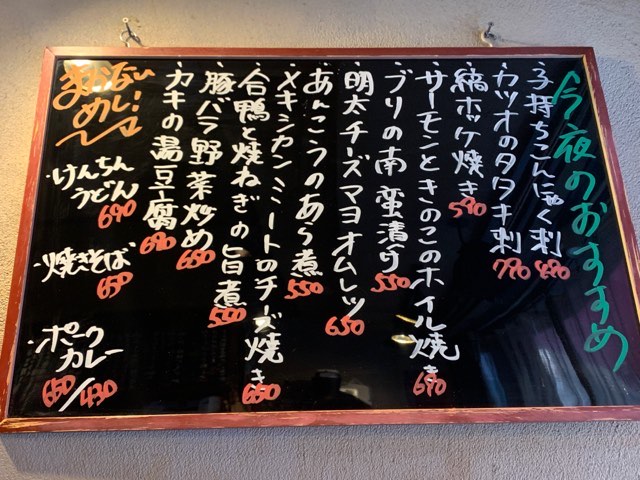 今夜のおすすめ
・子持ちこんにゃく刺 480
・カツオのタタキ刺 780
・縞ホッケ焼き 590
・サーモンときのこのホイル焼き 690
・ブリの南蛮漬け 550
・明太チーズマヨオムレツ 650
・あんこうのあら煮 550
・メキシカンミートのチーズ焼き 650
・合鴨と焼ねぎの旨煮 580
・豚バラ野菜炒め 650
・カキの湯豆腐 690
まかないめし!
・けんちんうどん 690
・焼きそば 650
・ポークカレー 650/430